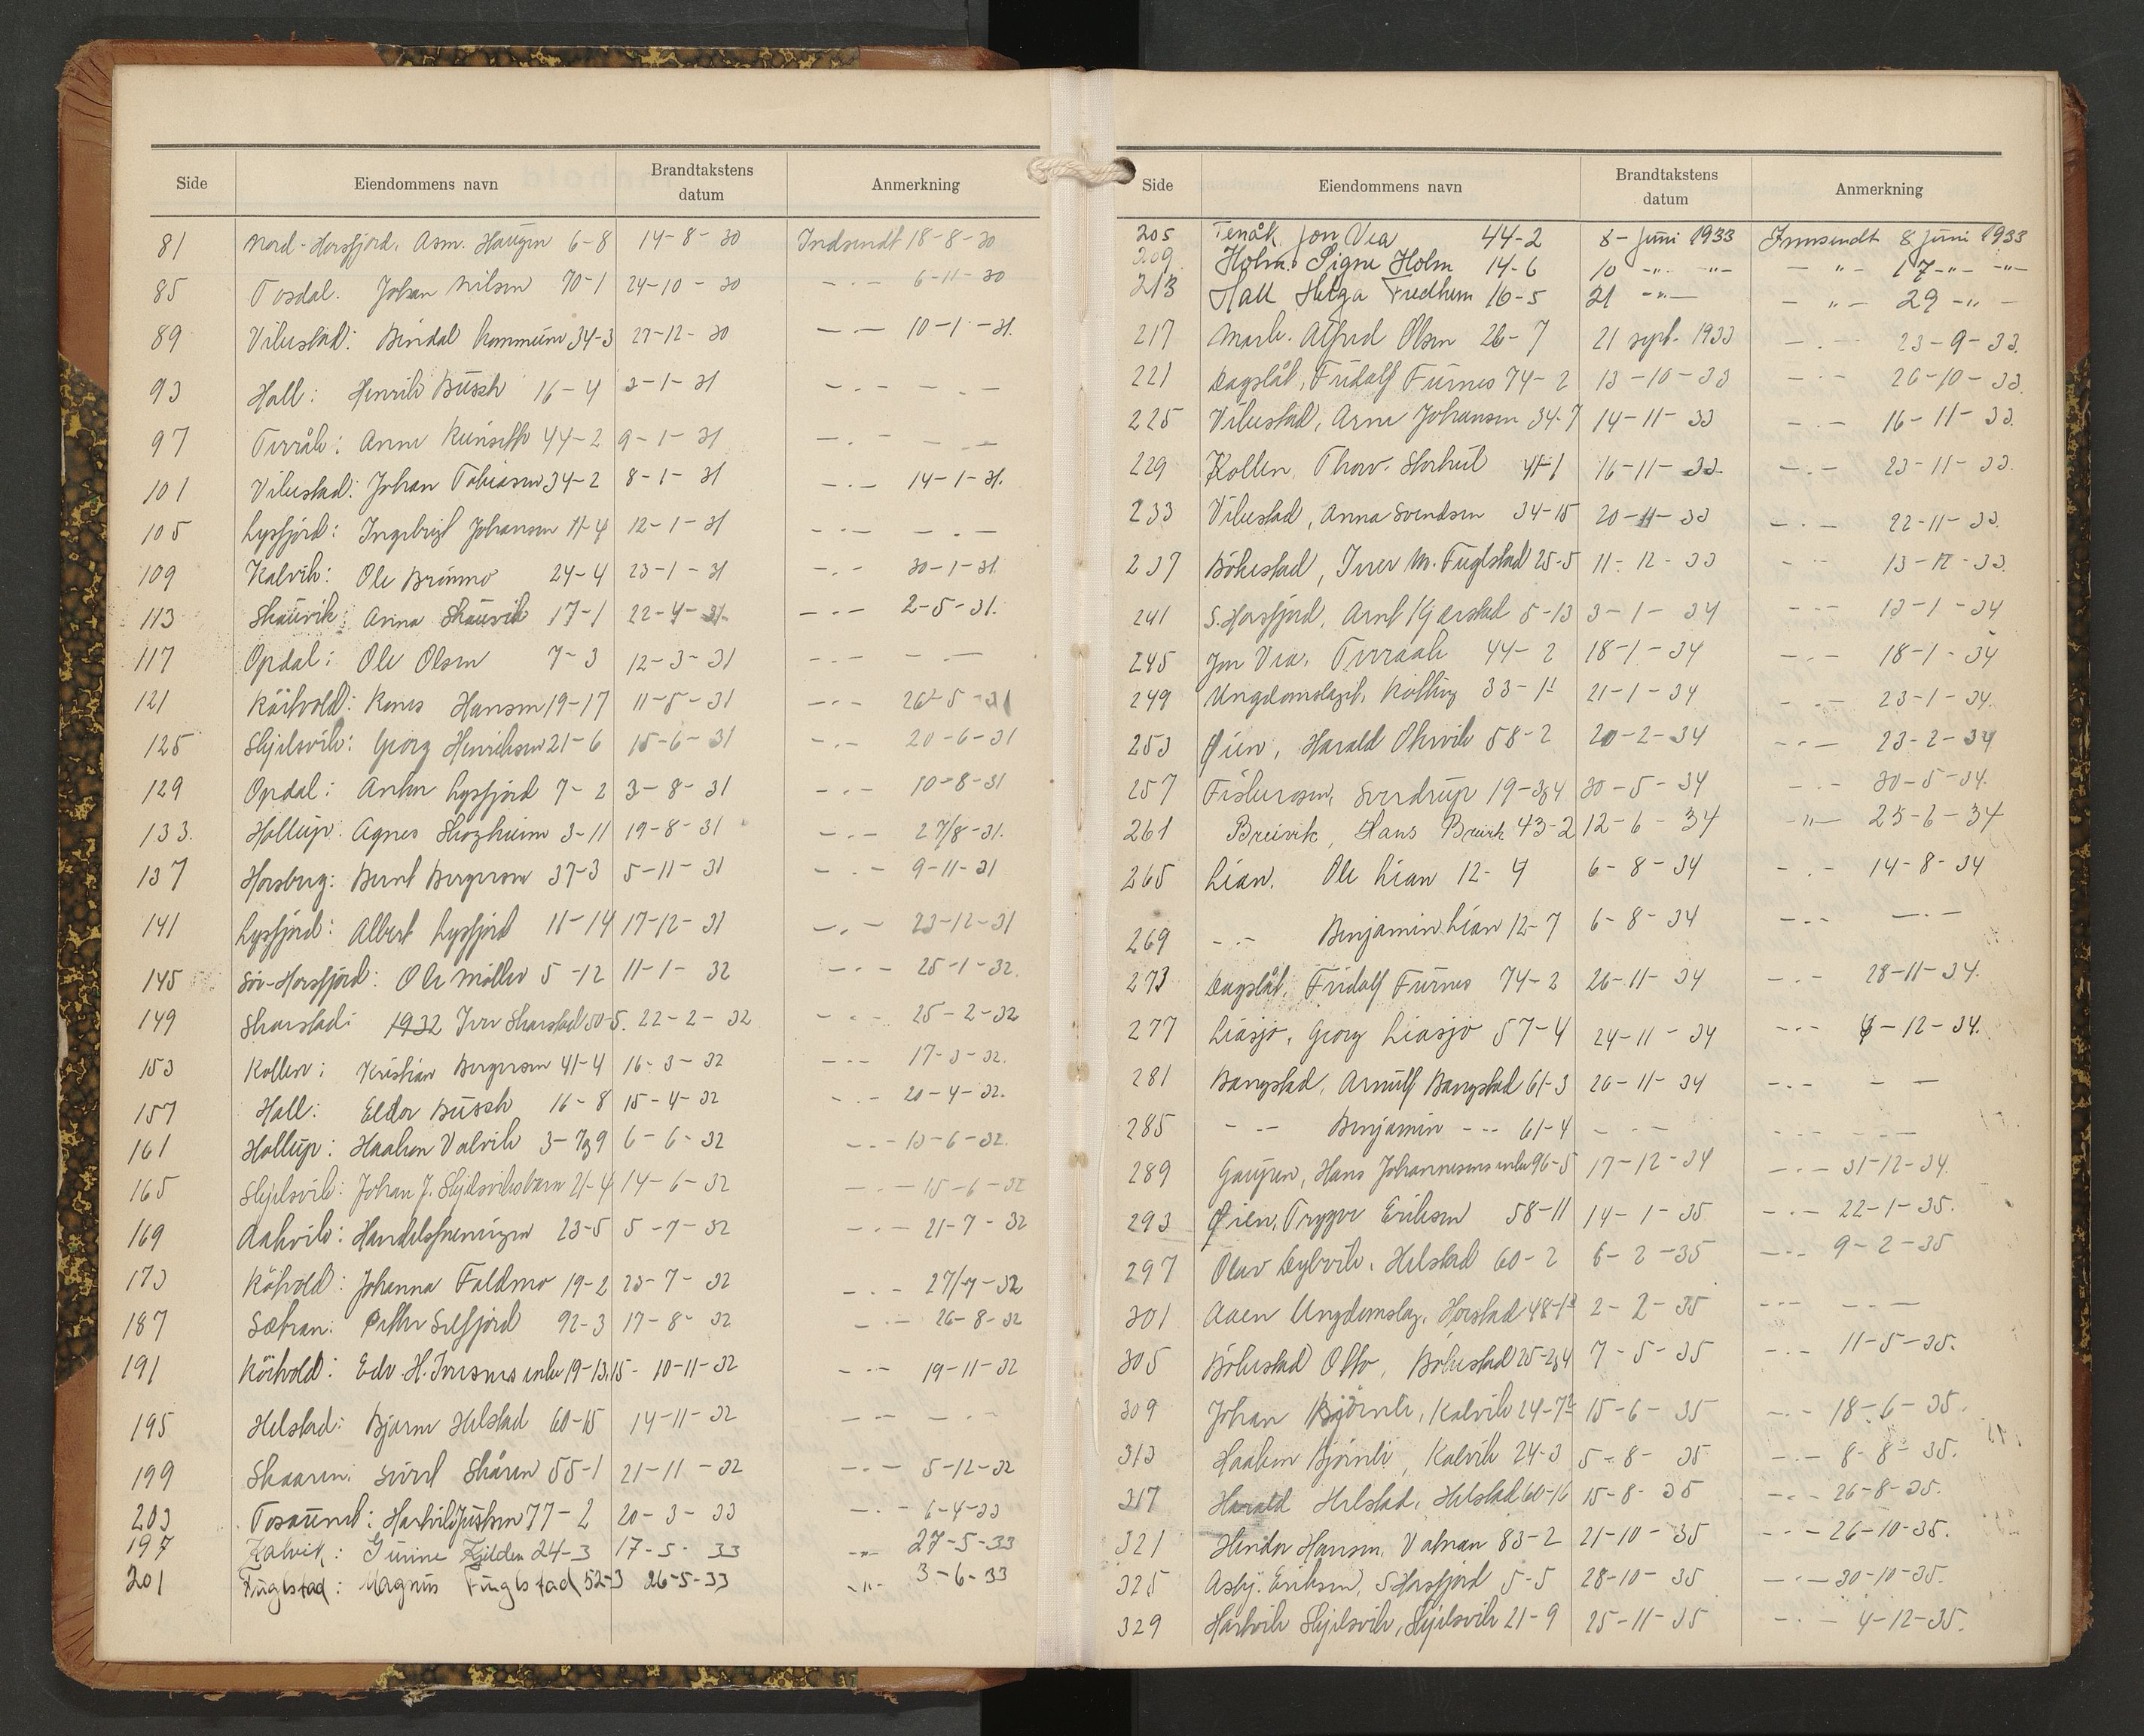 Side Eiendommens navn Brandtakstens datum Anmerkning
81 Nord-Horsfjord. Asm. Haugen 6-8 14-8-30 Indsendt 18-8-30
85 Tosdal. Johan Nilsen 70-1 24-10-30 -.- 6-11-30
89 Vikestad: Bindal kommune 34-3 27-12-30 -.- 10-1-31.
93 Hall: Henrik Busch 16-4 3-1-31 -.- -.-
97 Terråk: Anne 44-2 9-1-31 -.- -.-
101 Vikestad: Johan Tobiasen 34-2 8-1-31 -.- 14-1-31.
105 Lysfjord: Ingebrigt Johansen 11-4 12-1-31 -.- -.-
109 Kalvik: Ole Brønmo 24-4 23-1-31 -.- 30-1-31
113 Skauvik: Anna Skauvik 17-1 22-4-31. -.- 2-5-31.
117 Opdal: Ole Olsen 7-3 12-3-31 -.- -.-
121 Hansen 19-17 11-5-31 -.- 26-5-31
125 Skjelsvik: Georg Henriksen 21-6 15-6-31 -.- 20-6-31
129 Opdal: Anton Lysfjord 7-2 3-8-31 -.- 10-8-31
133. Hollup: Agnes Skogheim 3-11 19-8-31 -.- 27/8-31.
137 Horsberg: Bernt Bergersen 37-3 5-11-31 -.- 9-11-31
141 Lysfjord: Albert Lysfjord 11-14 17-12-31 -.- 23-12-31
145 Sör-Horsfjord: Ole Möller 5-12 11-1-32 -.- 25-1-32.
149 Skarstad: 1932 Iver Skarstad 50-5. 22-2-32 -.- 25-2-32
153 Kollen: Kristian Bergersen 41-4 16-3-32 -.- 17-3-32.
157 Hall: Eldor Busch 16-8 15-4-32 -.- 20-4-32.
161 Hollup: Haakon Valvik 3-7,9 6-6-32 -.- 13-6-32.
165 Skjelsvik: Johan J. Skjelsviksbarn 21-4 14-6-32 -.- 15-6-32
169 Aakvik: Handelsforeningen 23-5 5-7-32 -.- 21-7-32
173 Johanna Faldmo 19-2 23-7-32 -.- 27/7-32
187 Sætran: Petter Selfjord 92-3 17-8-32 -.- 26-8-32
191 Edv. H. Iversens enke 19-13,15- 10-11-32 -.- 19-11-32
195 Helstad: Bjarne Helstad 60-15 14-11-32 -.- -.-
199 Skaaren: Sivert Skåren 55-1 21-11-32 -.- 5-12-32
203 Tosaunet: Hartvik Justsen 77-2 20-3-33 -.- 6-4-33
197 Kalvik: Gurine Kjelden 24-3 17-5-33 -"- 27-5-33
201 Fuglstad: Magnus Fuglstad 52-3 26-5-33 -"- 3-6-33
Side Eiendommens navn Brandtakstens datum Anmerkning
205 Teråk. Jon Vea 44-2 8-Juni 1933 Innsendt 8 Juni 1933
209 Holm. Signe Holm 14-6 10 -"- -"- -"- 17-"- -"-
213 Hall Helga Fredhem 16-5 21 -"- -"- 29 -"-
217 Mark. Alfred Olsen 26-7 21 sept. 1933 -.- 23-9-33.
221 Dagslåt, Fridolf Furnes 74-2 13-10-33 -.- 26-10-33.
225 Vikestad, Arne Johansen 34-7 14-11-33 -.- 16-11-33.
229 Kollen, Thorv. Storheil 41-1 16-11-33. -.- 23-11-33.
233 Vikestad, Anna Svendsen 34-15 20-11-33 -.- 22-11-33.
237 Bökestad, Iver M. Fuglstad 25-5 11-12-33 -.- 13-12-33.
241 S. Horsfjord, Arnt Kjærstad 5-13 3-1-34 -.- 13-1-34
245 Jon Vea, Terraak 44-2 18-1-34 -.- 18-1-34
249 Ungdomslaget, Kolling 33-1 21-1-34 -.- 23-1-34.
253 Øien, Harald Okvik 58-2 20-2-34 -.- 23-2-34
257 Fiskerosen, Sverdrup 19-3,4 30-5-34 -.- 30-5-34.
261 Breivik, Hans Breivik 43-2 12-6-34 -"- 25-6-34
265 Lian. Ole Lian 12-4 6-8-34 -.- 14-8-34
269 -.- Benjamin Lian 12-7 6-8-34 -.- -.-
273 Dagslåt, Fridolf Furnes 74-2 26-11-34 -.- 28-11-34.
277 Liasjø, Georg Liasjø 57-4 24-11-34 -.- 4-12-34.
281 Bangstad, Arnulf Bangstad 61-3 26-11-34 -.- - -
285 -.- Benjamin -.- 61-4 -.- -.- -.-
289 Gaupen, Hans Johannesens enke 96-5 17-12-34 -.- 31-12-34.
293 Øien, Trygve Eriksen 58-11 14-1-35 -.- 22-1-35.
297 Olav Dybvik, Helstad 60-2 6-2-35 -.- 9-2-35
301 Aaen Ungdomslag, Horstad 48-1 2-2-35 -.- -.-
305 Bökestad Otto, Bökestad 25-2,4 7-5-35 -.- 11-5-35.
309 Johan Bjørnli, Kalvik 24-7 15-6-35 -.- 18-6-35.
313 Haakon Bjørnli, Kalvik 24-3 5-8-35 -.- 8-8-35.
317 Harald Helstad, Helstad 60-16 15-8-35 -.- 26-8-35.
321 Hansen, Vatnan 83-2 21-10-35 -.- 26-10-35.
325 Asbj. Eriksen, S. Horsfjord 5-5 28-10-35 -.- 30-10-35.
329 Hartvik Skjelsvik, Skjelsvik 21-9 25-11-35 -.- 4-12-35.